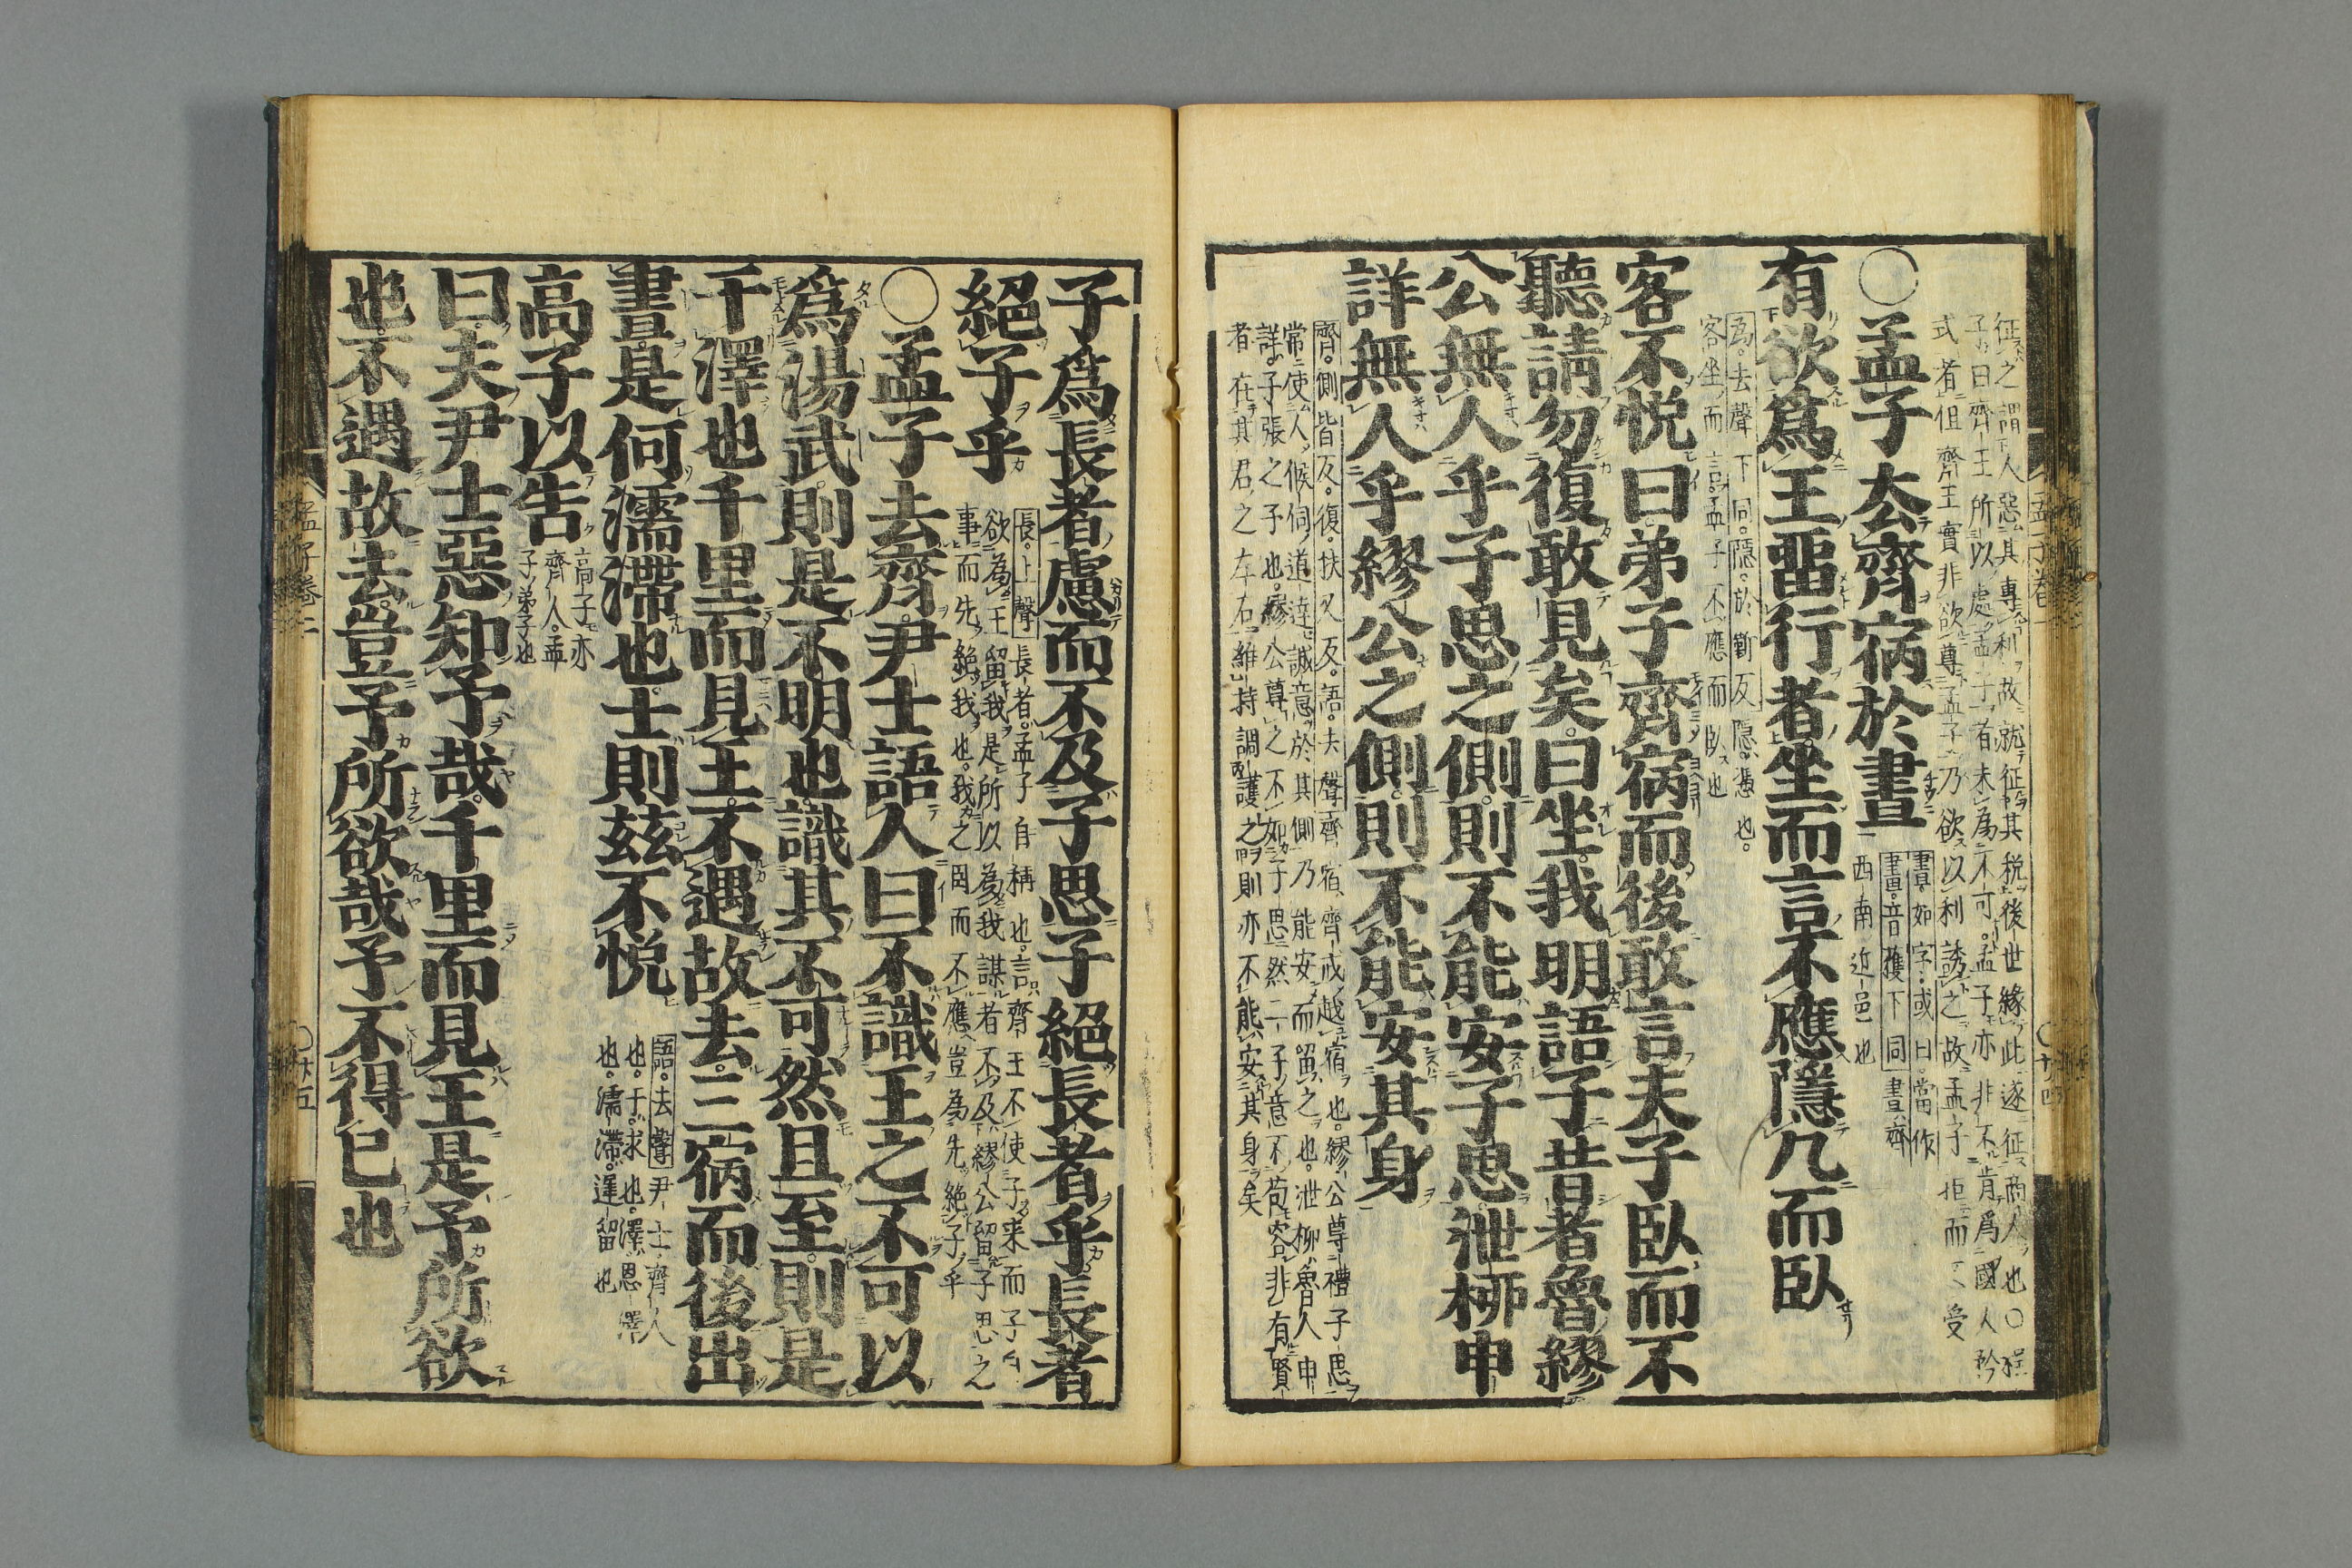 征之謂人惡其專利故就征其稅後世緣此遂征商人也○程
子曰齊王所以處孟子者未爲不可孟子亦非不肯爲國人矜
式者但齊王實非欲尊孟子乃欲以利誘之故孟子拒而不受
○孟子去齊宿於晝
晝。如字。或曰。當作
畫。音獲下同晝齊
西南近邑也
有欲爲王畱行者坐而言不應隱几而臥
爲。去聲下同。隱。於靳反隱憑也。
客坐而言。孟子不應而臥也
客不悅曰弟子齊宿而後敢言夫子臥而不
聽請勿復敢見矣。曰坐。我明語子昔者魯繆
公無人乎子思之側。則不能安子思泄柳申
詳無人乎繆公之側則不能安其身
齊。側皆反。復。扶又反。語。去聲齊宿齊戒越宿也。繆公尊禮子思
常使人候伺道達誠意於其側乃能安而留之也。泄柳魯人申
詳子張之子也。繆公尊之不如子思然二子意不苟容非有賢
者在其君之左右維持調護之則亦不能安其身矣
子爲長者慮而不及子思子絕長者乎。長者
絕子乎
長。上聲長者。孟子自稱也。言齊王不使子來而子自
欲爲王留我是所以爲我謀者不及繆公留子思之
事而先絕我也。我之臥而不應豈爲先絕子乎
○孟子去齊。尹士語人曰不識王之不可以
爲湯武則是不明也。識其不可然且至。則是
千澤也千里而見王。不遇故去。三宿而後出
晝。是何濡滯也。士則玆不悅
語。去聲尹士齊人
也。干。求也。澤恩澤
也。濡滯。遲留也
高子以告
高子亦
齊人。孟
子弟子也
曰。夫尹士惡知予哉。千里而見王是予所欲
也。不遇故去。豈予所欲哉予不得已也